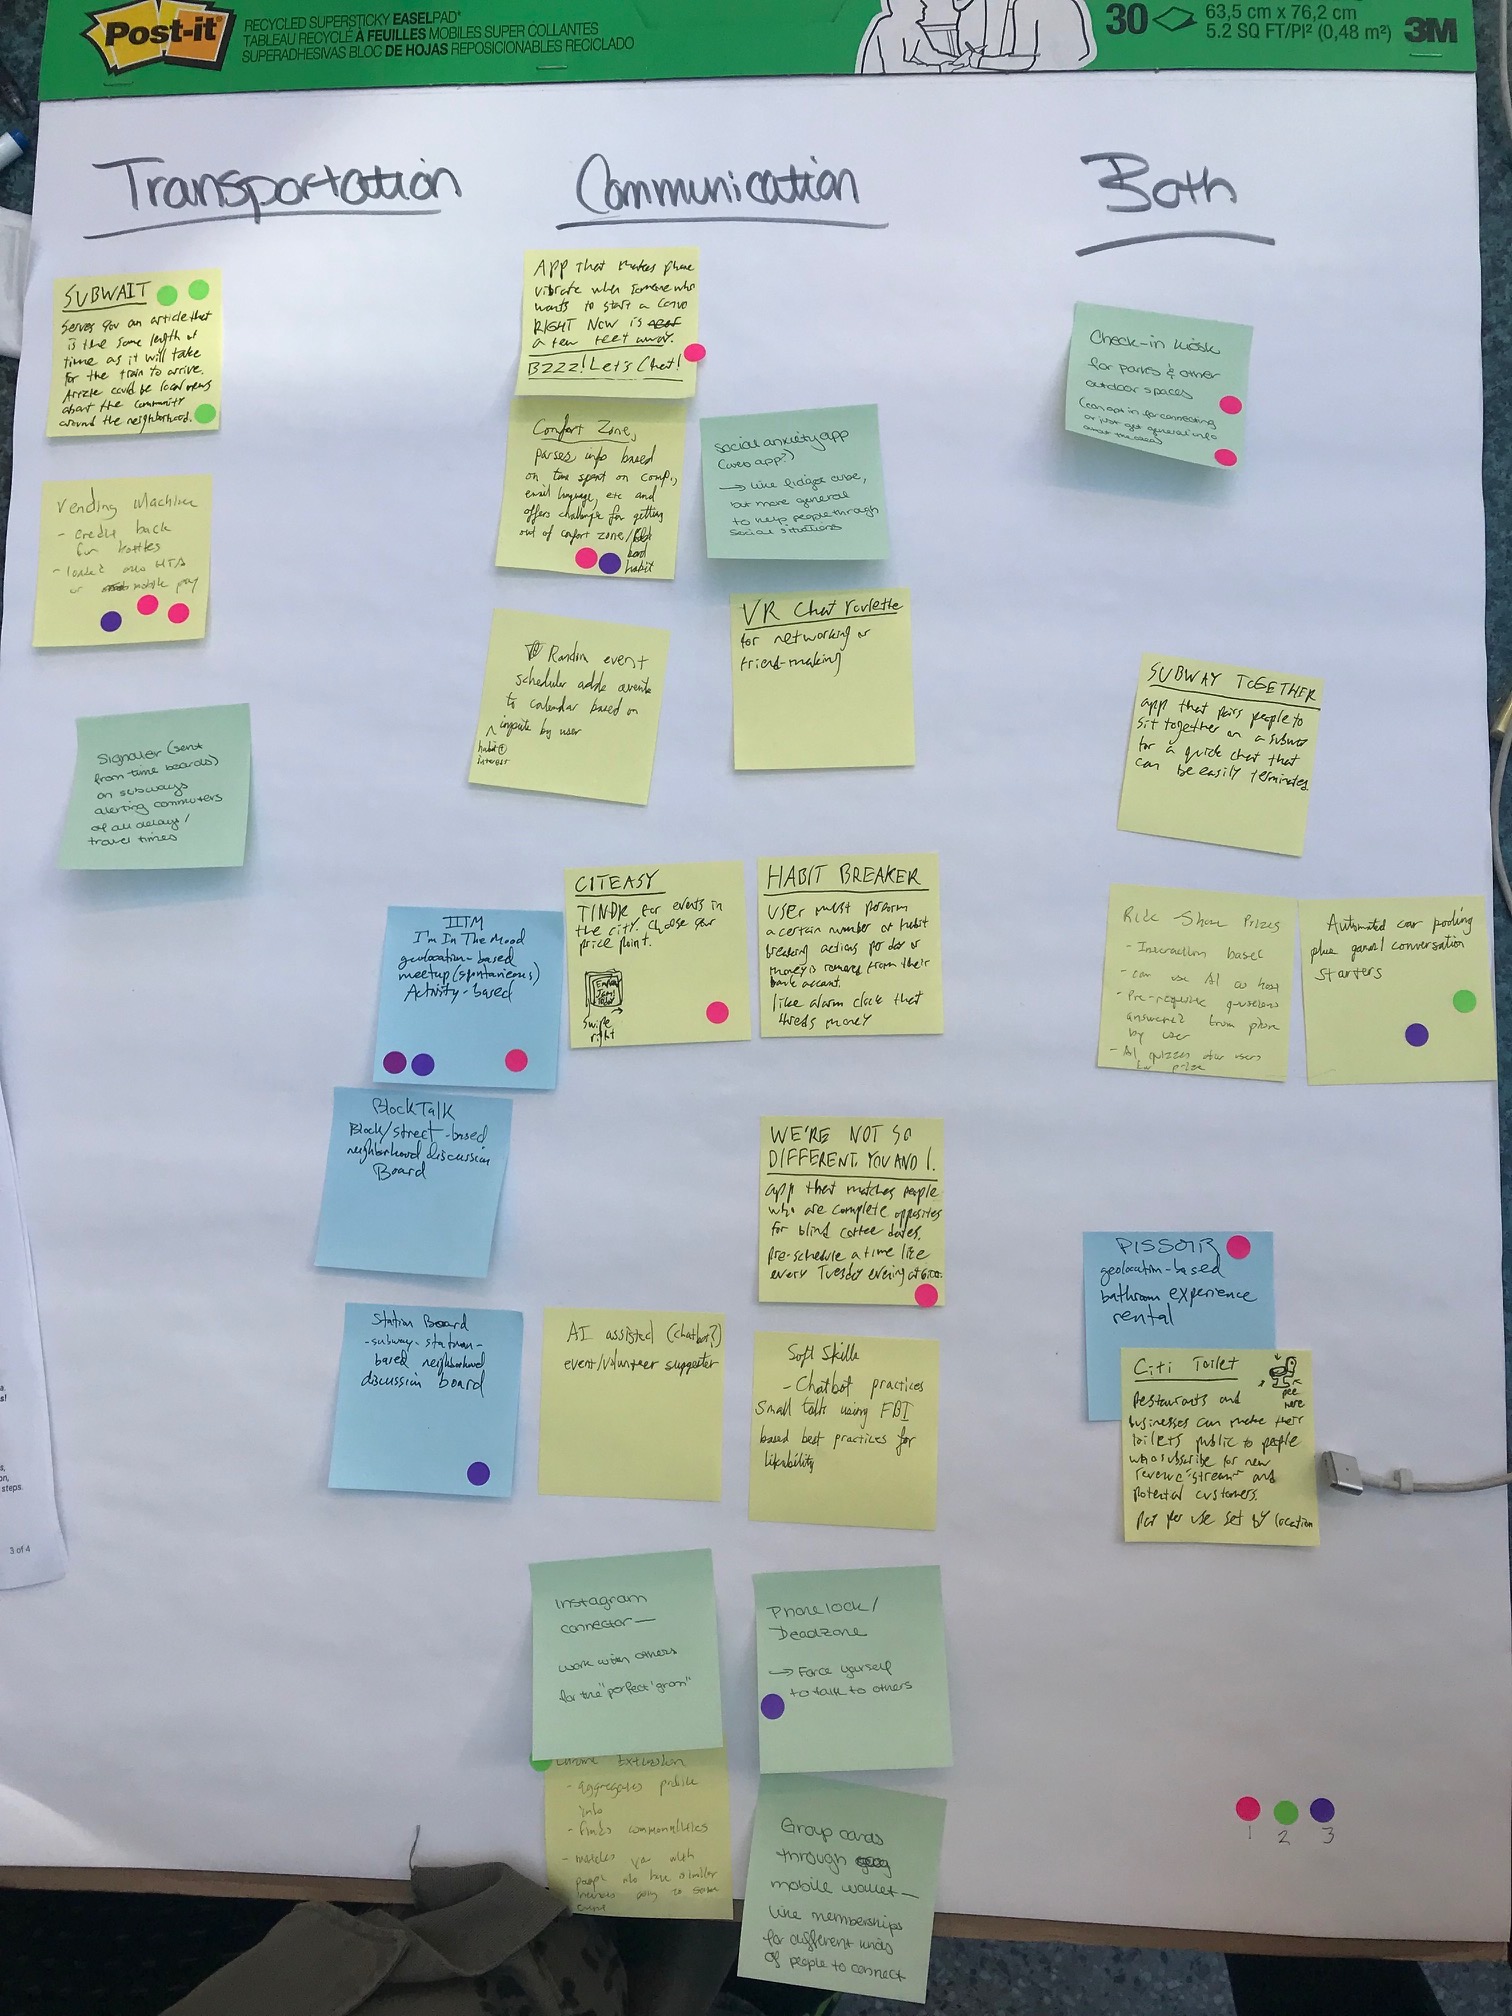 Post-it
RECYCLED SUPERSTICKY EASELPAD*
TABLEAU RECYCLÉ À FEUILLES MOBILES SUPER COLLANTES
SUPERADHESIVAS BLOC DE HOJAS REPOSICIONABLES RECICLADO
30
63,5 cm x 76,2 cm
5.2 SQ FT/PI² (0,48 m²)
3M
Transportation
Communication
Both
SUBWAIT
Serves you an article that
is the same length of
time as it will take
for the train to arrive.
Article could be local news
about the community
around the neighborhood.
Vending Machine
- credit back
for bottles
- loaded onto MTA
or mobile pay
Signaler (sent
from time boards)
on subways
alerting commuters
of all delays/
travel times
App that makes phone
vibrate when someone who
wants to start a convo
RIGHT NOW is
a few feet away.
BZZZ! Let's Chat!
Comfort Zone,
parses info based
on time spent on comp,
email language, etc and
offers challenge for getting
out of comfort zone/
bad
habit
Social anxiety app
(web app?)
→ like fidget cube,
but more general
to help people through
social situations
Random event
scheduler adds events
to calendar based on
^ inputs by user
habit +
interest
VR Chat roulette
for networking or
friend-making
IITM
I'm In The Mood
geolocation-based
meetup (spontaneous)
Activity-based
CITEASY
TINDR for events in
the city. Choose your
price point.
Swipe
right
HABIT BREAKER
User must perform
a certain number of habit
breaking actions per day or
money is removed from their
bank account.
like alarm clock that
shreds money
BlockTalk
Block/street-based
neighborhood discussion
Board
WE'RE NOT SO
DIFFERENT, YOU AND I.
app that matches people
who are complete opposites
for blind coffee dates.
Pre-schedule a time like
every Tuesday evening at
Station Board
-subway-station-
based neighborhood
discussion board
AI assisted (chatbot?)
event/volunteer suggester
Soft Skills
- Chatbot practices
small talk using FBI
based best practices for
likability
Instagram
connector—
work with others
for the "perfect 'gram"
Phone lock/
Deadzone
→ Force yourself
to talk to others
Chrome Extension
- aggregates profile
info
- finds commonalities
- matches you with
people who have similar
interests going to same
event
Group cards
through
mobile wallet—
like memberships
for different kinds
of people to connect
Check-in kiosk
for parks & other
outdoor spaces
(can opt in for connecting
or just get general info
about the area)
SUBWAY TOGETHER
app that pairs people to
sit together on a subway
for a quick chat that
can be easily terminated
Ride-Share Prizes
- Interaction based
- can use AI as host
- Pre-requisite questions
answered from phone
by user
- AI quizzes other users
for prize
Automated car pooling
plus game/conversation
starters
PISSOIR
geolocation-based
bathroom experience
rental
Citi Toilet
pee
here
Restaurants and
businesses can make their
toilets public to people
who subscribe for new
revenue "stream" and
potential customers.
Pay per use set by location
1 2 3
steps.
3 of 4